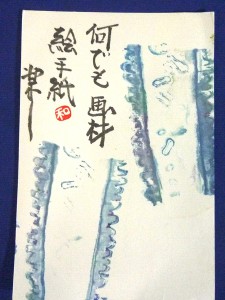 何でも画材
絵手紙
楽し
和